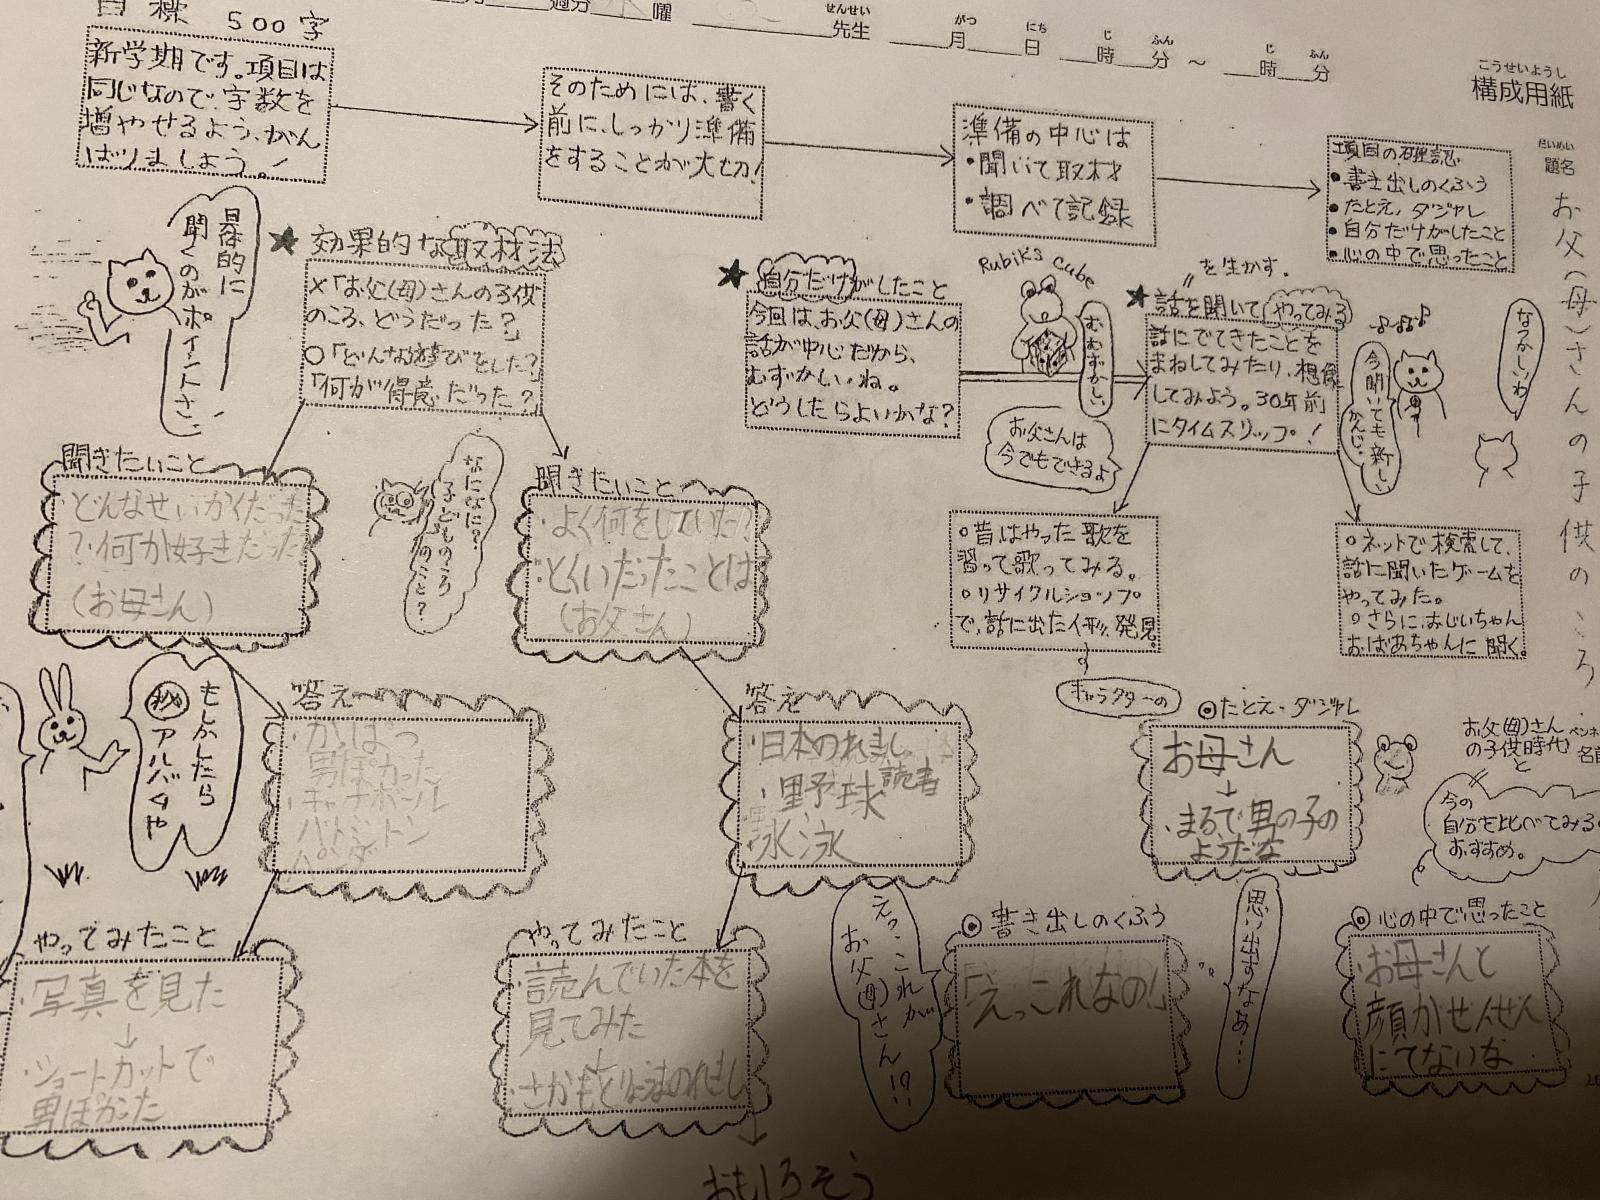 目標 500字
週分
曜
せんせい
先生
がつ
月
にち
日
じ
時
ふん
分
～
じ
時
ふん
分
こうせいようし
構成用紙
だいめい
題名
お父(母)さんの子供のころ
新学期です。項目は
同じなので、字数を
増やせるよう、がん
ばりましょう。!
そのためには、書く
前に、しっかり準備
をすることが大切!
準備の中心は
・聞いて取材
・調べて記録
項目の確認
・書き出しのくふう
・たとえ、ダジャレ
・自分だけがしたこと
・心の中で思ったこと
具体的に
聞くのがポイントさ。
★ 効果的な取材法
×「お父(母)さんの子供
のころ、どうだった?」
○「どんな遊びをした?」
「何が得意だった?」
★ 自分だけがしたこと
今回は、お父(母)さんの
話が中心だから、
むずかしいね。
どうしたらよいかな?
Rubik's Cube
むむずかしい
お父さんは
今でもできるよ
〃を生かす.
★ 話を聞いてやってみる
話にでてきたことを
まねしてみたり、想像
してみよう。30年前
にタイムスリップ!
今聞いても新しい
かんじ。
なつかしいわ
聞きたいこと
・どんなせいかくだった
?・何が好きだった
(お母さん)
なになに?
子どものころ
のこと?
聞きたいこと
・よく何をしていた?
・とくいだったことは
(お父さん)
○昔はやった歌を
習って歌ってみる。
○リサイクルショップ
で、話に出た人形、発見。
キャラクターの
○ネットで検索して、
話に聞いたゲームを
やってみた。
○さらに、おじいちゃん
おばあちゃんに聞く。
もしかしたら
㊙アルバムや
答え
・かっぱつ
男ぽかった
・キャチボール
バトミントン
パンダ
答え
・日本のれきし
・野球 読者
水泳
◎たとえ・ダジャレ
お母さん
↓
・まるで男の子の
ようだな
お父(母)さん
の子供時代
と
今の
自分を比べてみる
おすすめ。
やってみたこと
・写真を見た
↓
・ショートカットで
男ぽかった
やってみたこと
・読んでいた本を
見てみた
↓
・さかもとりょうまのれきし
おもしろそう
えっ、これが
お父(母)さん!?
◎書き出しのくふう
「えっこれなの!」
思い出すなあ…
◎心の中で思ったこと
・お母さんと
顔がぜんぜん
にてないな